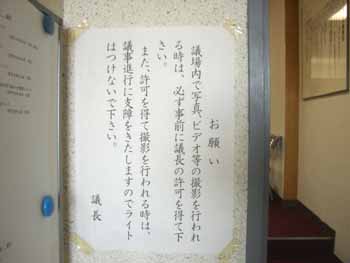 お願い
議場内で写真、ビデオ等の撮影を行われ
る時は、必ず事前に議長の許可を得て下
さい。
また、許可を得て撮影を行われる時は、
議事進行に支障をきたしますのでライト
はつけないで下さい。
議長